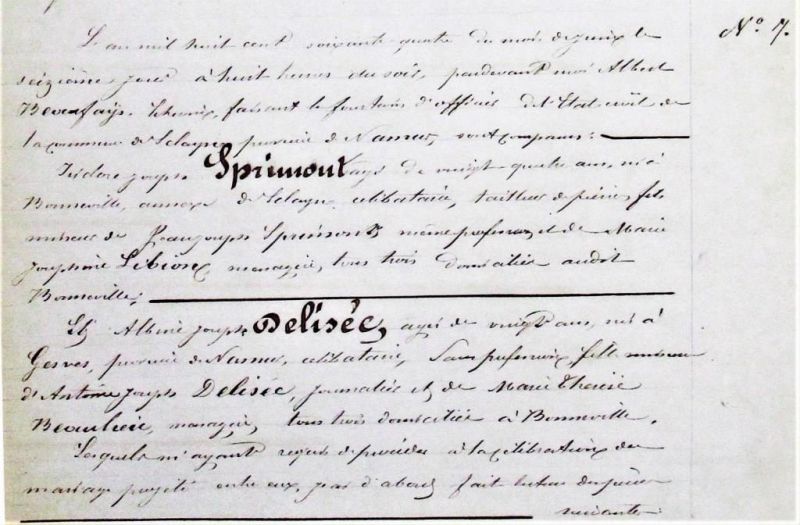 N° 7.
L'an mil huit cent soixante quatre du mois de juin le
seizième jour à huit heures du soir, pardevant moi Albert
Beaufays, Echevin, faisant les fonctions d'officier de l'Etat civil de
la commune de Sclayn, province de Namur, sont comparus :
Isidore Joseph Sprimont, agé de vingt-quatre ans, né à
Bonneville, annexe de Sclayn, célibataire, tailleur de pierres, fils
mineur de Jean Joseph Sprimont, même profession, et de Marie
Josephine Libioux, ménagère, tous trois domiciliés audit
Bonneville;
Et Albine Joseph Delisée, agée de vingt ans, née à
Gesves, province de Namur, célibataire, sans profession, fille mineure
d'Antoine Joseph Delisée, journalier et de Marie Thérèse
Beaulieu, ménagère, tous trois domiciliés à Bonneville.
Lesquels m'ayant requis de procéder à la célébration du
mariage projeté entre eux, j'ai d'abord fait lecture des pièces
suivantes: